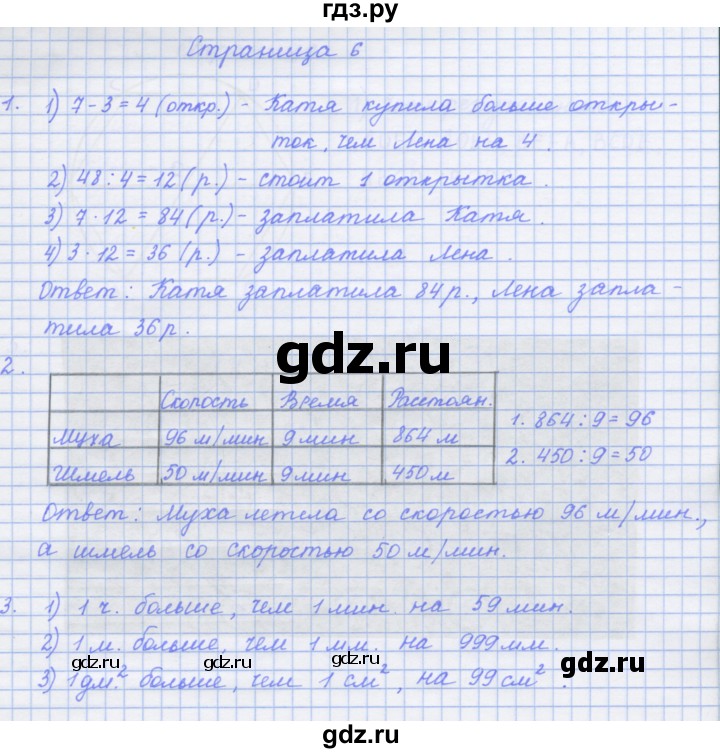 гдз.ру
Страница 6
1. 1) 7 - 3 = 4 (откр.) - Катя купила больше откры-
ток, чем Лена на 4.
2) 48 : 4 = 12 (р.) - стоит 1 открытка.
3) 7 · 12 = 84 (р.) - заплатила Катя.
4) 3 · 12 = 36 (р.) - заплатила Лена.
Ответ: Катя заплатила 84 р., Лена запла-
тила 36 р.
2.
Скорость Время Расстоян.
Муха 96 м/мин 9 мин 864 м
Шмель 50 м/мин 9 мин 450 м
1. 864 : 9 = 96
2. 450 : 9 = 50
Ответ: Муха летела со скоростью 96 м/мин.,
а шмель со скоростью 50 м/мин.
3. 1) 1 ч. больше, чем 1 мин. на 59 мин.
2) 1 м. больше, чем 1 мм. на 999 мм.
gdz.ru gdz.ru gdz.ru gdz.ru
3) 1 дм.² больше, чем 1 см², на 99 см².
gdz.ru gdz.ru gdz.ru gdz.ru
gdz.ru